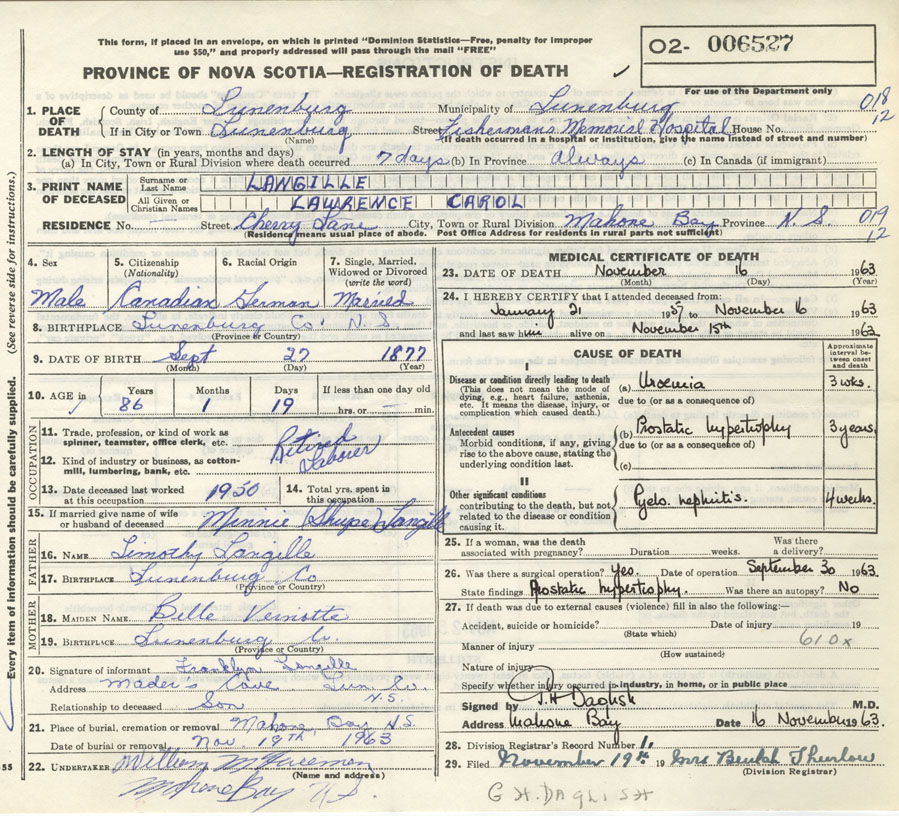 This form, if placed in an envelope, on which is printed "Dominion Statistics—Free, penalty for improper
use $50," and properly addressed will pass through the mail "FREE"
O2- 006527
PROVINCE OF NOVA SCOTIA—REGISTRATION OF DEATH ✓
For use of the Department only
018
12
1. PLACE OF DEATH County of Lunenburg Municipality of Lunenburg
If in City or Town Lunenburg Street Fishermans Memorial Hospital House No.
(Name) (If death occurred in a hospital or institution, give the name instead of street and number)
2. LENGTH OF STAY (in years, months and days)
(a) In City, Town or Rural Division where death occurred 7 days (b) In Province always (c) In Canada (if immigrant)
3. PRINT NAME OF DECEASED Surname or Last Name LANGILLE
All Given or Christian Names LAWRENCE CAROL
RESIDENCE No. Street Cherry Lane City, Town or Rural Division Mahone Bay Province N.S. 019
12
(Residence means usual place of abode. Post Office Address for residents in rural parts not sufficient)
(See reverse side for instructions.)
Every item of information should be carefully supplied.
55
4. Sex 5. Citizenship (Nationality) 6. Racial Origin 7. Single, Married, Widowed or Divorced (write the word)
Male Canadian German Married
8. BIRTHPLACE Lunenburg Co. N.S.
(Province or Country)
9. DATE OF BIRTH Sept 27 1877
(Month) (Day) (Year)
10. AGE in Years Months Days If less than one day old
86 1 19 hrs. or min.
OCCUPATION
11. Trade, profession, or kind of work as spinner, teamster, office clerk, etc. Retired
12. Kind of industry or business, as cotton-mill, lumbering, bank, etc. Laborer
13. Date deceased last worked at this occupation 1950 14. Total yrs. spent in this occupation
15. If married give name of wife or husband of deceased Minnie (Shupe) Langille
FATHER
16. NAME Timothy Langille
17. BIRTHPLACE Lunenburg Co
(Province or Country)
MOTHER
18. MAIDEN NAME Belle Veinotte
19. BIRTHPLACE Lunenburg Co.
(Province or Country)
20. Signature of informant Franklyn Langille
Address Mader's Cove Lun Co.
N.S.
Relationship to deceased Son
21. Place of burial, cremation or removal Mahone Bay N.S.
Date of burial or removal Nov. 19TH 1963
22. UNDERTAKER William
(Name and address)
Mahone Bay N.S.
MEDICAL CERTIFICATE OF DEATH
23. DATE OF DEATH November 16 1963
(Month) (Day) (Year)
24. I HEREBY CERTIFY that I attended deceased from:
January 21 1957 to November 16 1963
and last saw him alive on November 15th 1963
CAUSE OF DEATH
Approximate interval between onset and death
I
Disease or condition directly leading to death (a) Uroemia 3 wks.
(This does not mean the mode of dying, e.g., heart failure, asthenia, etc. It means the disease, injury, or complication which caused death.)
due to (or as a consequence of)
Antecedent causes (b) Prostatic hypertrophy 3 years
Morbid conditions, if any, giving rise to the above cause, stating the underlying condition last.
due to (or as a consequence of)
(c)
II
Other significant conditions Pyelo. nephitis. 4 weeks.
contributing to the death, but not related to the disease or condition causing it.
25. If a woman, was the death associated with pregnancy? Duration weeks. Was there a delivery?
26. Was there a surgical operation? Yes. Date of operation September 30 1963.
State findings Prostatic hypertrophy. Was there an autopsy? No
27. If death was due to external causes (violence) fill in also the following:—
Accident, suicide or homicide? Date of injury 19
(State which)
Manner of injury 610x
(How sustained?
Nature of injury
Specify whether injury occurred in industry, in home, or in public place
Signed by M.D.
Address Mahone Bay Date 16 November 1963.
28. Division Registrar's Record Number
29. Filed November 19th 19 Mrs Beulah Thurlow
(Division Registrar)
G H. DAGLISH